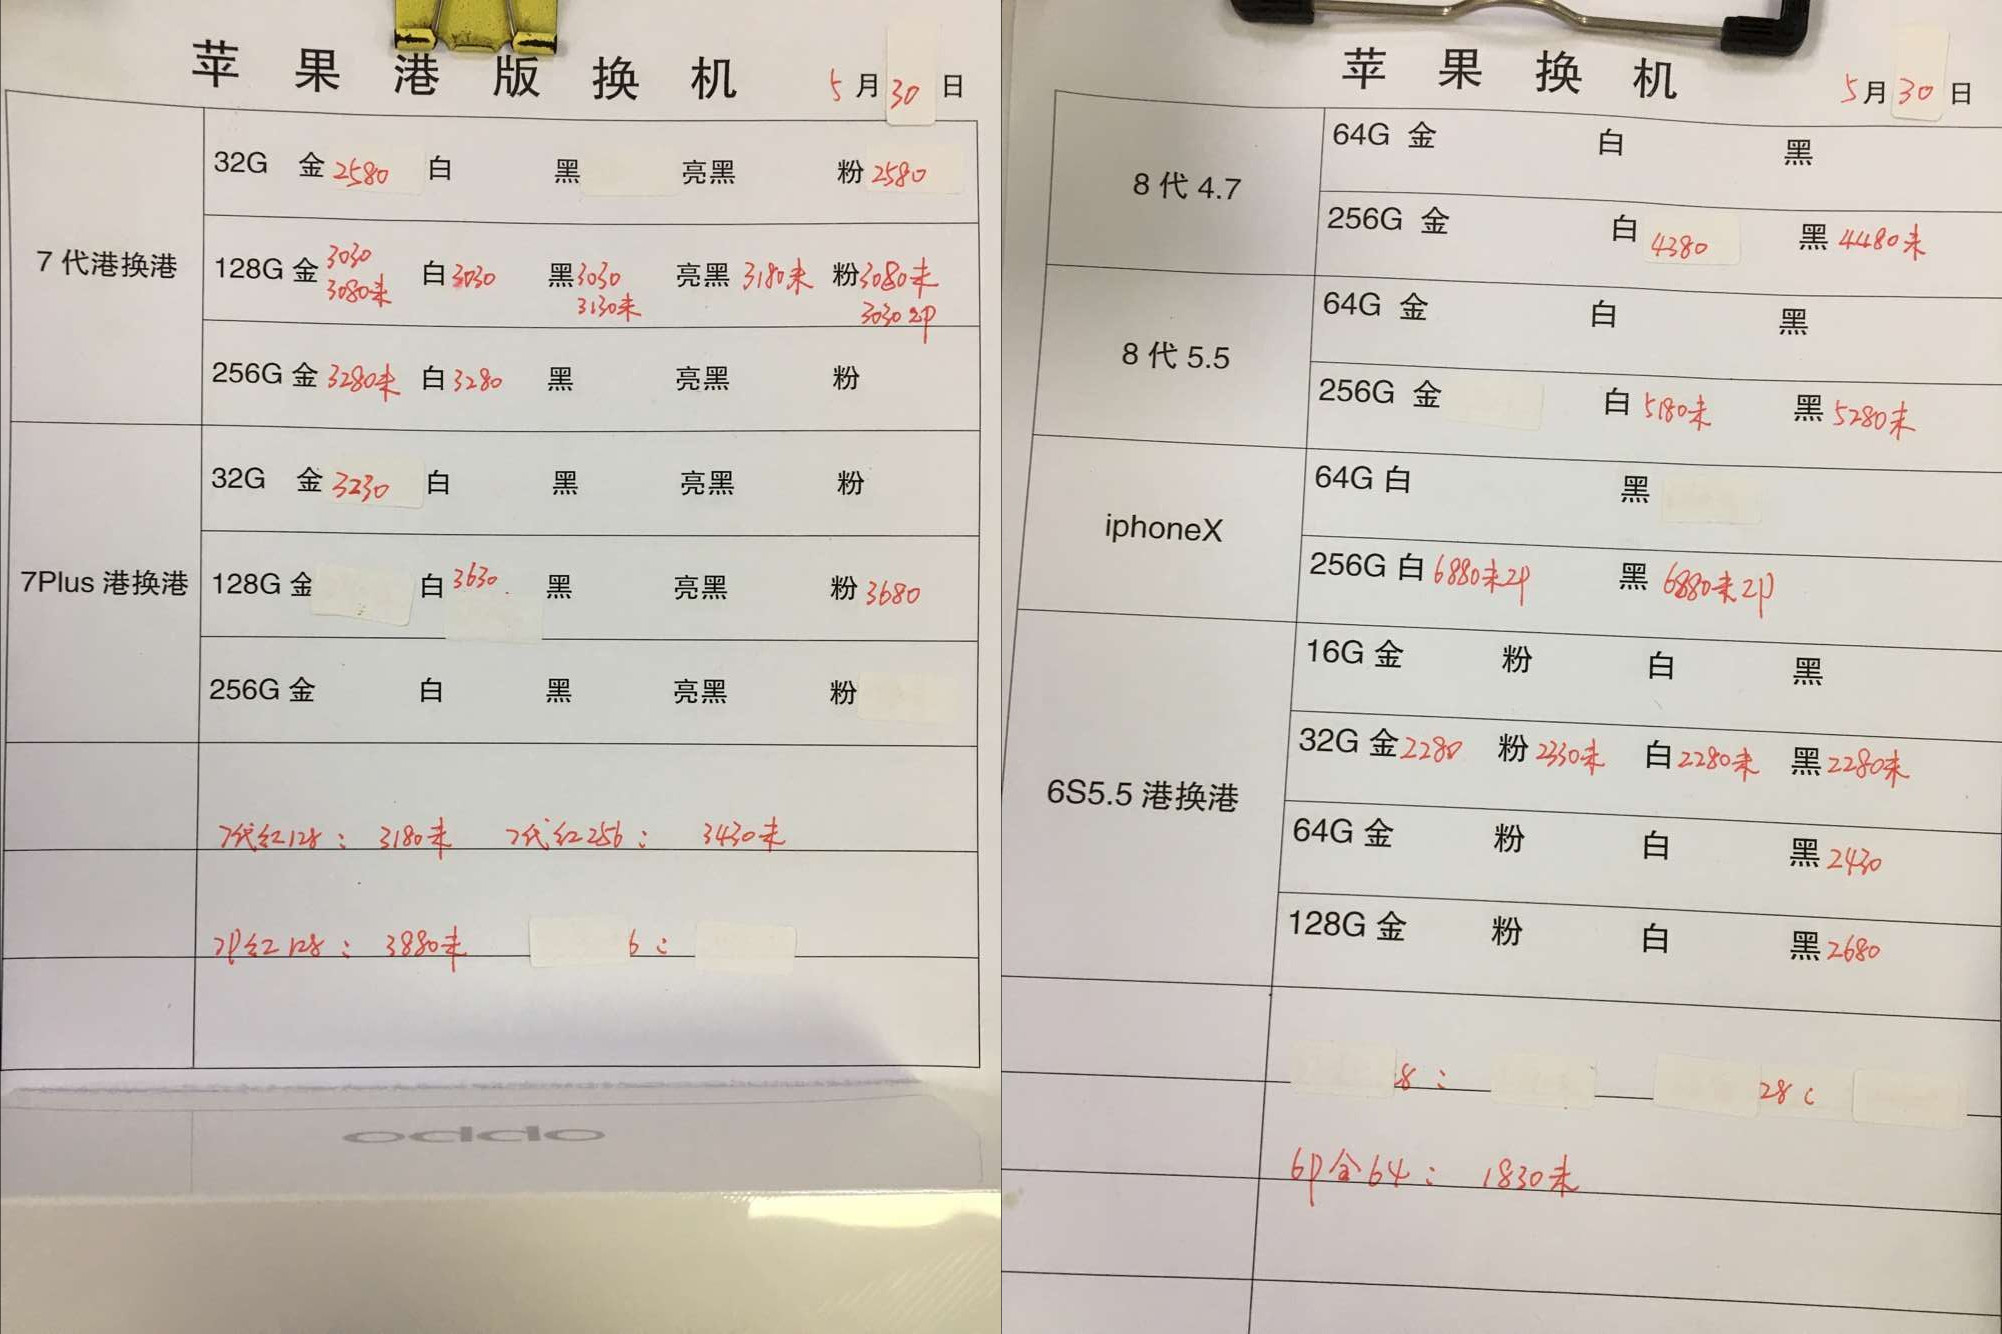 苹果港版换机 5月30日
7代港换港
32G 金2580 白 黑 亮黑 粉2580
128G 金3030 3080未 白3030 黑3030 3130未 亮黑 3180未 粉3080未 3030 2P
256G 金3280未 白3280 黑 亮黑 粉
7Plus 港换港
32G 金3230 白 黑 亮黑 粉
128G 金 白3630. 黑 亮黑 粉3680
256G 金 白 黑 亮黑 粉
7代红128: 3180未 7代红256: 3430未
7P红128: 3880未 6:
oppo
苹果换机 5月30日
8代 4.7
64G 金 白 黑
256G 金 白4380 黑4480未
8代 5.5
64G 金 白 黑
256G 金 白5180未 黑5280未
iphoneX
64G 白 黑
256G 白6880未2P 黑6880未2P
6S5.5 港换港
16G 金 粉 白 黑
32G 金2280 粉2330未 白2280未 黑2280未
64G 金 粉 白 黑2430
128G 金 粉 白 黑2680
8: 28:
6P金64: 1830未